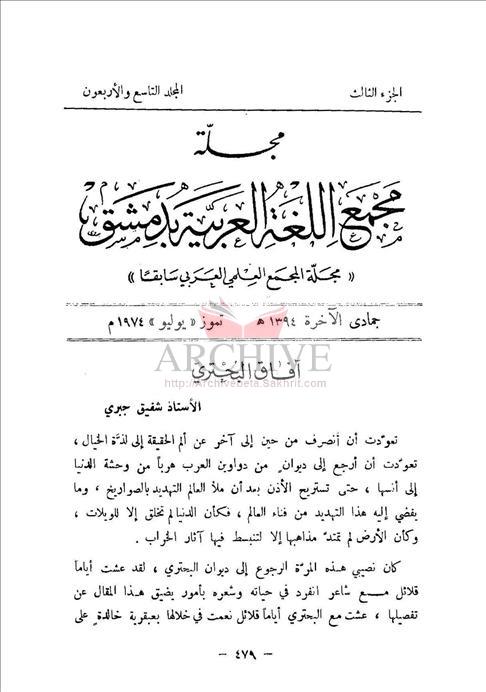 الجزء الثالث المجلد التاسع والأربعون
مجلّة
مجمع اللغة العربية بدمشق
« مجلة المجمع العلمي العربي سابقًا »
جمادى الآخرة ١٣٩٤ هـ تموز « يوليو » ١٩٧٤ م
ARCHIVE
http://Archivebeta.Sakhrit.com
آفاق البحتري
الأستاذ شفيق جبري
تعوّدت أن أنصرف من حين إلى آخر عن ألم الحقيقة إلى لذّة الخيال ،
تعوّدت أن أرجع إلى ديوانٍ من دواوين العرب هرباً من وحشة الدنيا
إلى أنسها ، حتى تستريح الأذن بعد أن ملأ العالم التهديد بالصواريخ ، وما
يفضي إليه هذا التهديد من فناء العالم ، فكأن الدنيا لم تخلق إلا للويلات ،
وكأن الأرض لم تمتدّ مذاهبها إلا لتنبسط فيها آثار الخراب .
كان نصيبي هذه المرّة الرجوع إلى ديوان البحتري ، لقد عشت أياماً
قلائل مع شاعر انفرد في حياته وشعره بأمور يضيق هذا المقال عن
تفصيلها ، عشت مع البحتري أياماً قلائل نعمت في خلالها بعبقرية خالدةٍ على
– ٤٧٩ –